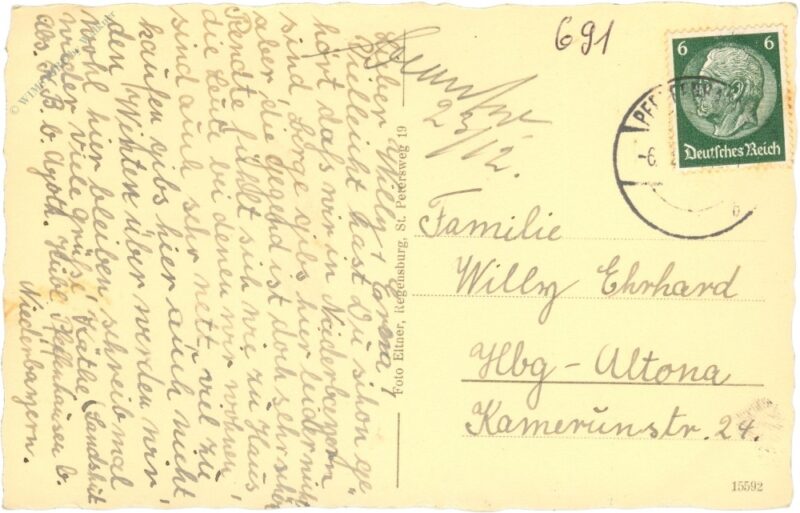 Lieber Willy + Erna!
Vielleicht hast Du schon ge-
hört daß wir in Niederbayern
sind, Berge gibs hier leider nicht
aber die Gegend ist doch sehr schön
Renate fühlt sich wie zu Haus
die Leut bei denen wir wohnen,
sind auch sehr nett, viel zu
kaufen gibs hier auch nicht
den Winter über werden wir
wohl hier bleiben, schreib mal
wieder viele Grüße, Käthe (Landshut
abs. b. Agath. Hübe Pfeffenhausen b.
Niederbayern.
Foto Eltner, Regensburg, St. Petersweg 19
691
23/12.
6 6
Deutsches Reich
-6.
Familie
Willy Ehrhard
Hbg-Altona
Kamerunstr. 24.
15592